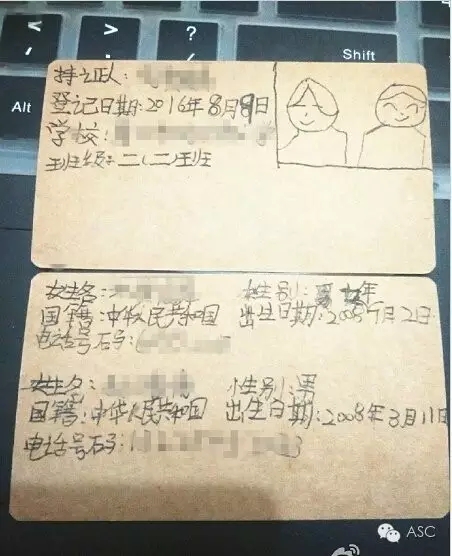 <
>
?
Shift
Alt
持证人:
登记日期:2016年8月9日
学校:
班级:二(二)班
姓名: 性别:女
国籍:中华人民共和国 出生日期:2008年7月2日
电话号码:
姓名: 性别:男
国籍:中华人民共和国 出生日期:2008年3月11日
电话号码:
ASC